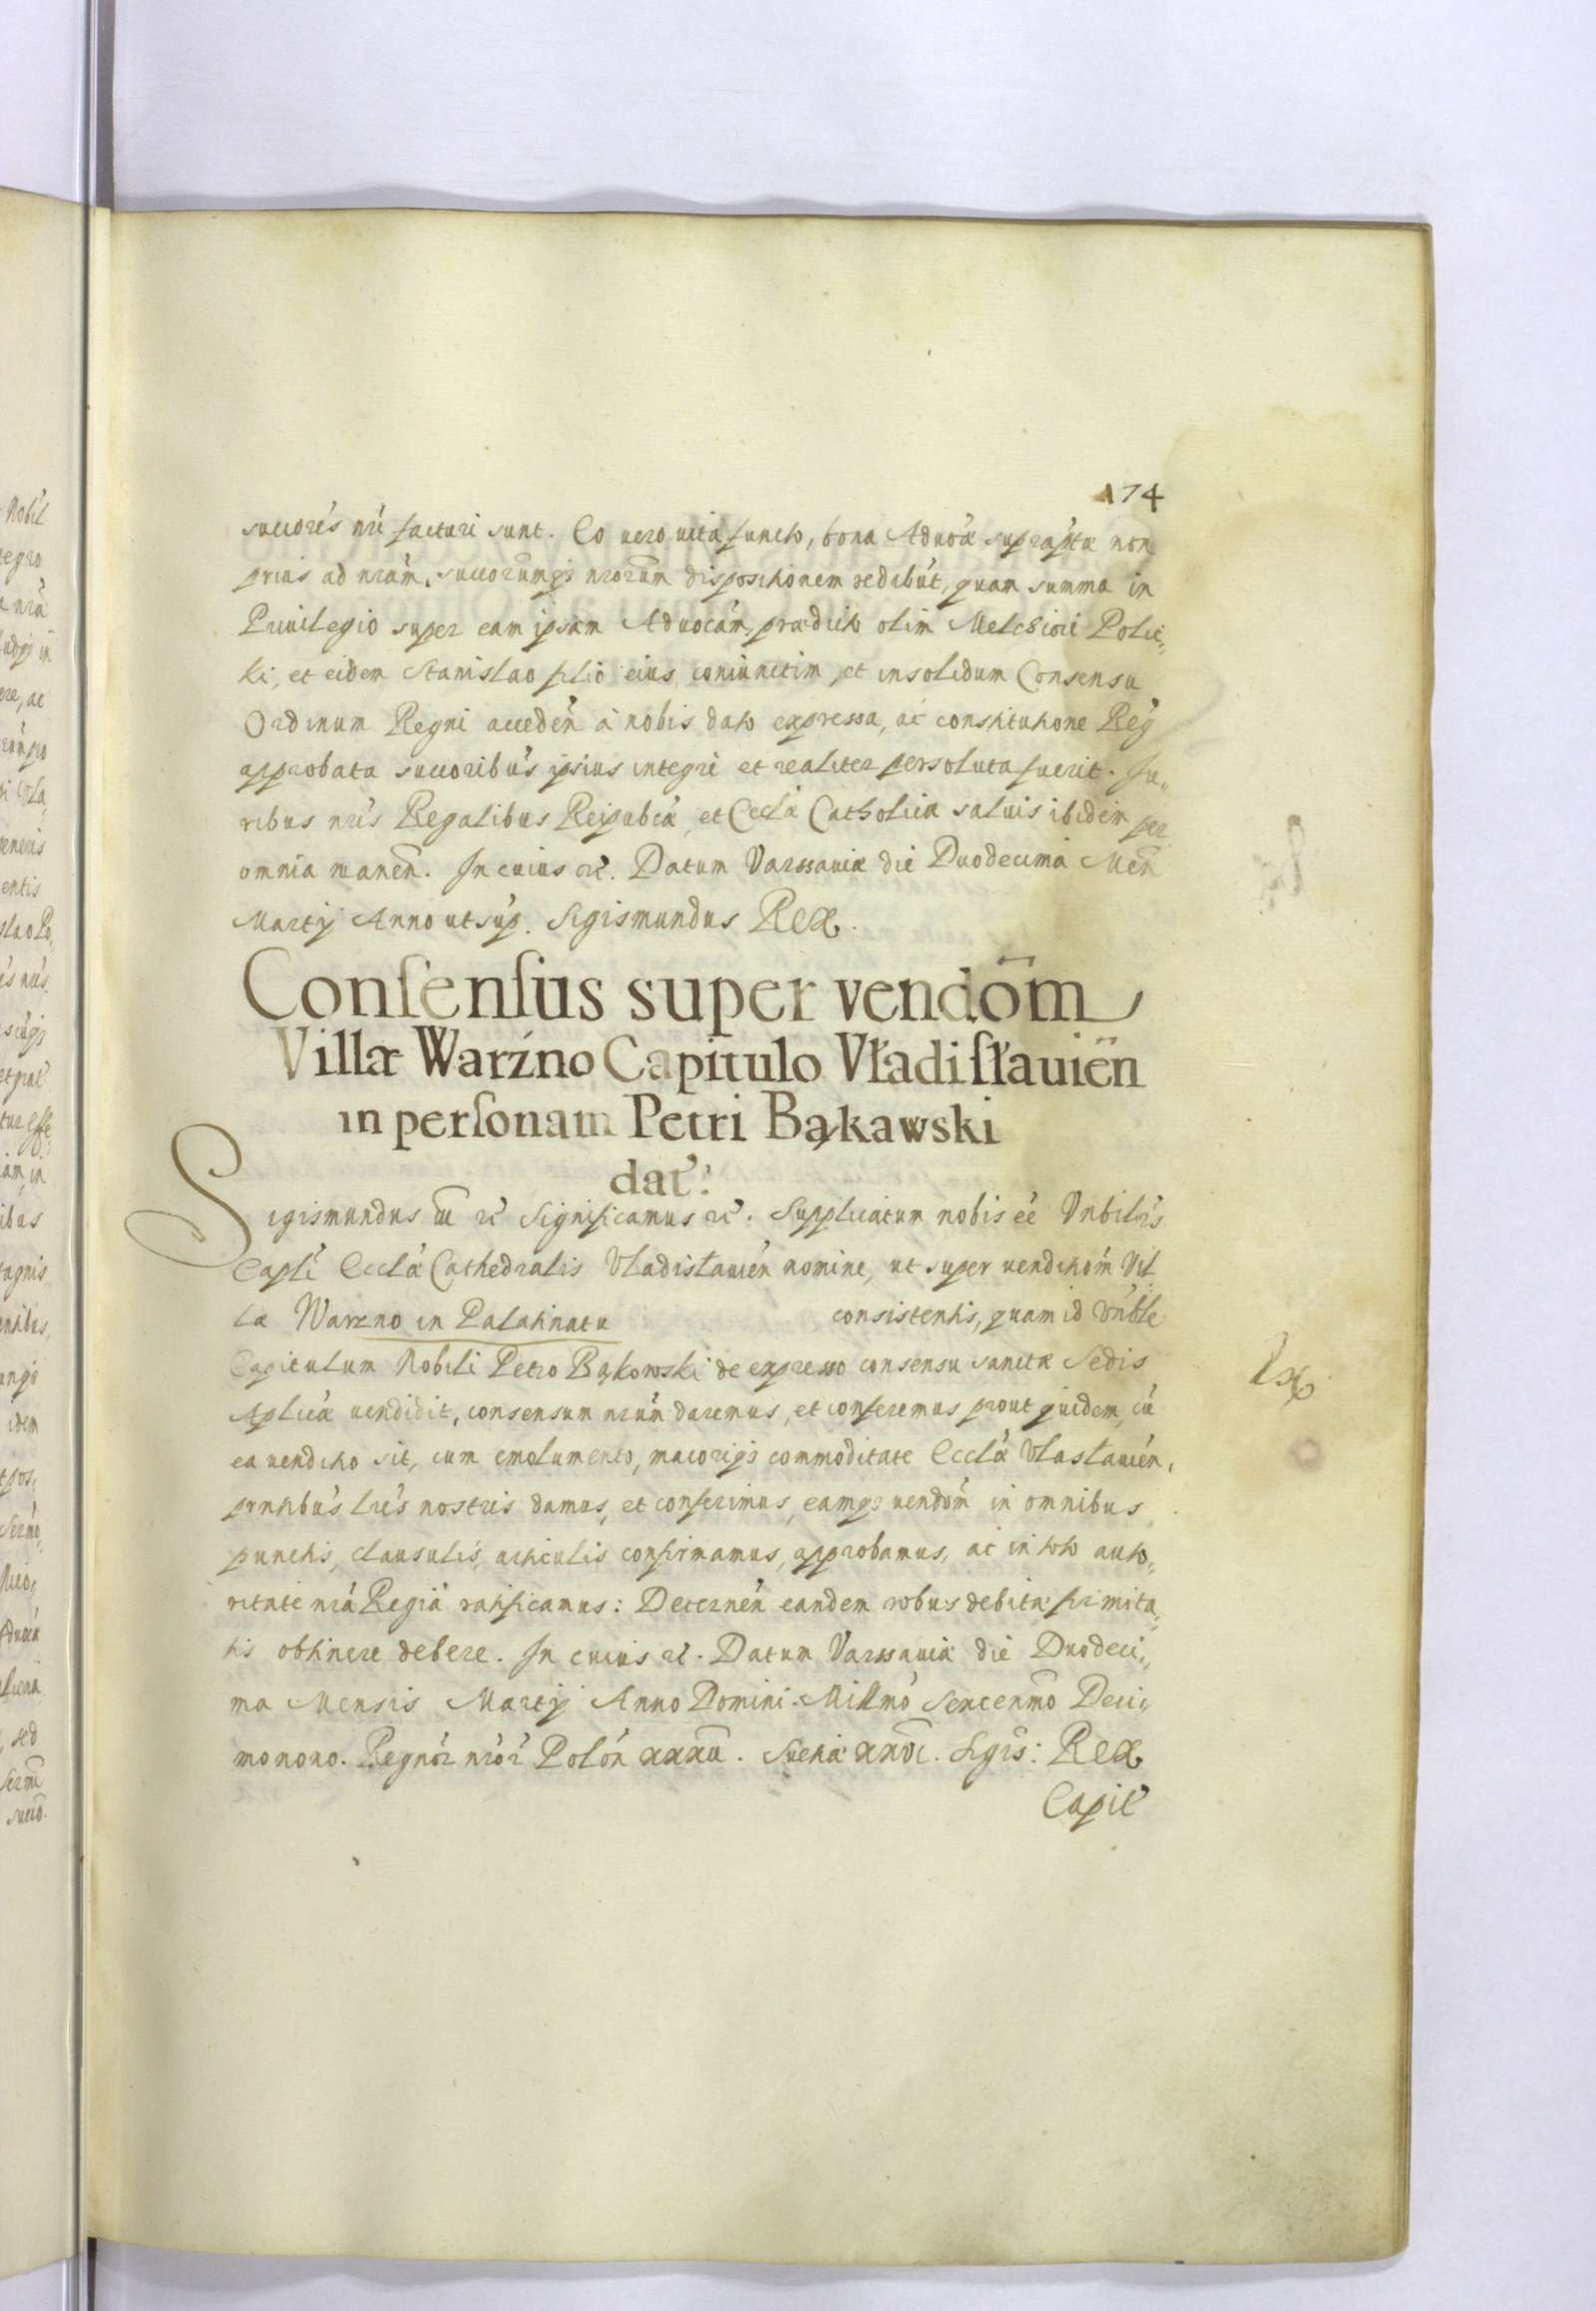 174
succores nri facturi sunt. Eo vero vita functo, bona Advocae suprapta non
prius ad nram, succorumqz nrorum dispositionem redibut, quam summa in
Privilegio super eam ipsam Advocam praedicto olim Melchiori Polic„
ki, et eidem Stanislao filio eius coniunctim, et insolidum Consensu
Ordinum Regni acceden à nobis dato expressa, ac constitutione Reg
approbata succoribus ipsius integre et realiter persoluta fuerit. Iu„
ribus nris Regalibus Reipubcae, et Ecclae Catholicae salvis ibidem per
omnia manen. In cuius rei. Datum Varssaviae die Duodecima Men
Martij Anno ut sup. Sigismundus Rex.
Consensus super vendom
Villae Warźno Capitulo Vładisłauien
in personam Petri Bąkawski
dat:
Sigismundus iii rc Significamus rc. Supplicatum nobis eé Vnbilis
Capli Ecclae Cathedralis Vladislauien nomine, ut super venditiom Vil
lae Warzno in Palatinatu consistentis, quam id Vnble
Capitulum Nobili Petro Bąkowski de expresso consensu sanctae Sedis
Aplicae vendidit, consensum nrum daremus, et conferemus prout quidem, cu
ea venditio sit, cum emolumento, maioriqz commoditate Ecclae Vlaslauien,
prntibus lres nostris damus, et conferimus, eamqz vendom in omnibus
punctis, clausulis, articulis confirmamus, approbamus, ac in toto auto„
ritate nra Regia ratificamus: Decernen eandem robus debitae firmita„
tis obtinere debere. In cuius rei. Datum Varssaviae die Duodeci„
ma Mensis Martij Anno Domini Millmo Sexcenmo Deci„
monono. Regnor nror Polon xxxii. Sueciae xxvi. Sigis: Rex
Capit